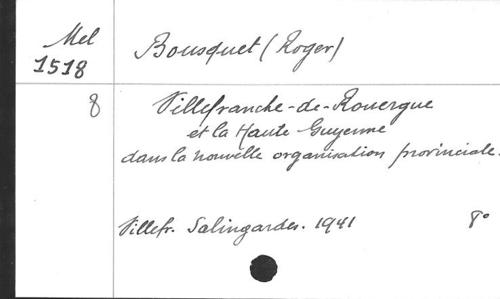 Mel
1518
Bousquet (Roger)
8
Villefranche-de-Rouergue
et la Haute Guyenne
dans la nouvelle organisation provinciale.
Villefr. Salingardes. 1941
8°